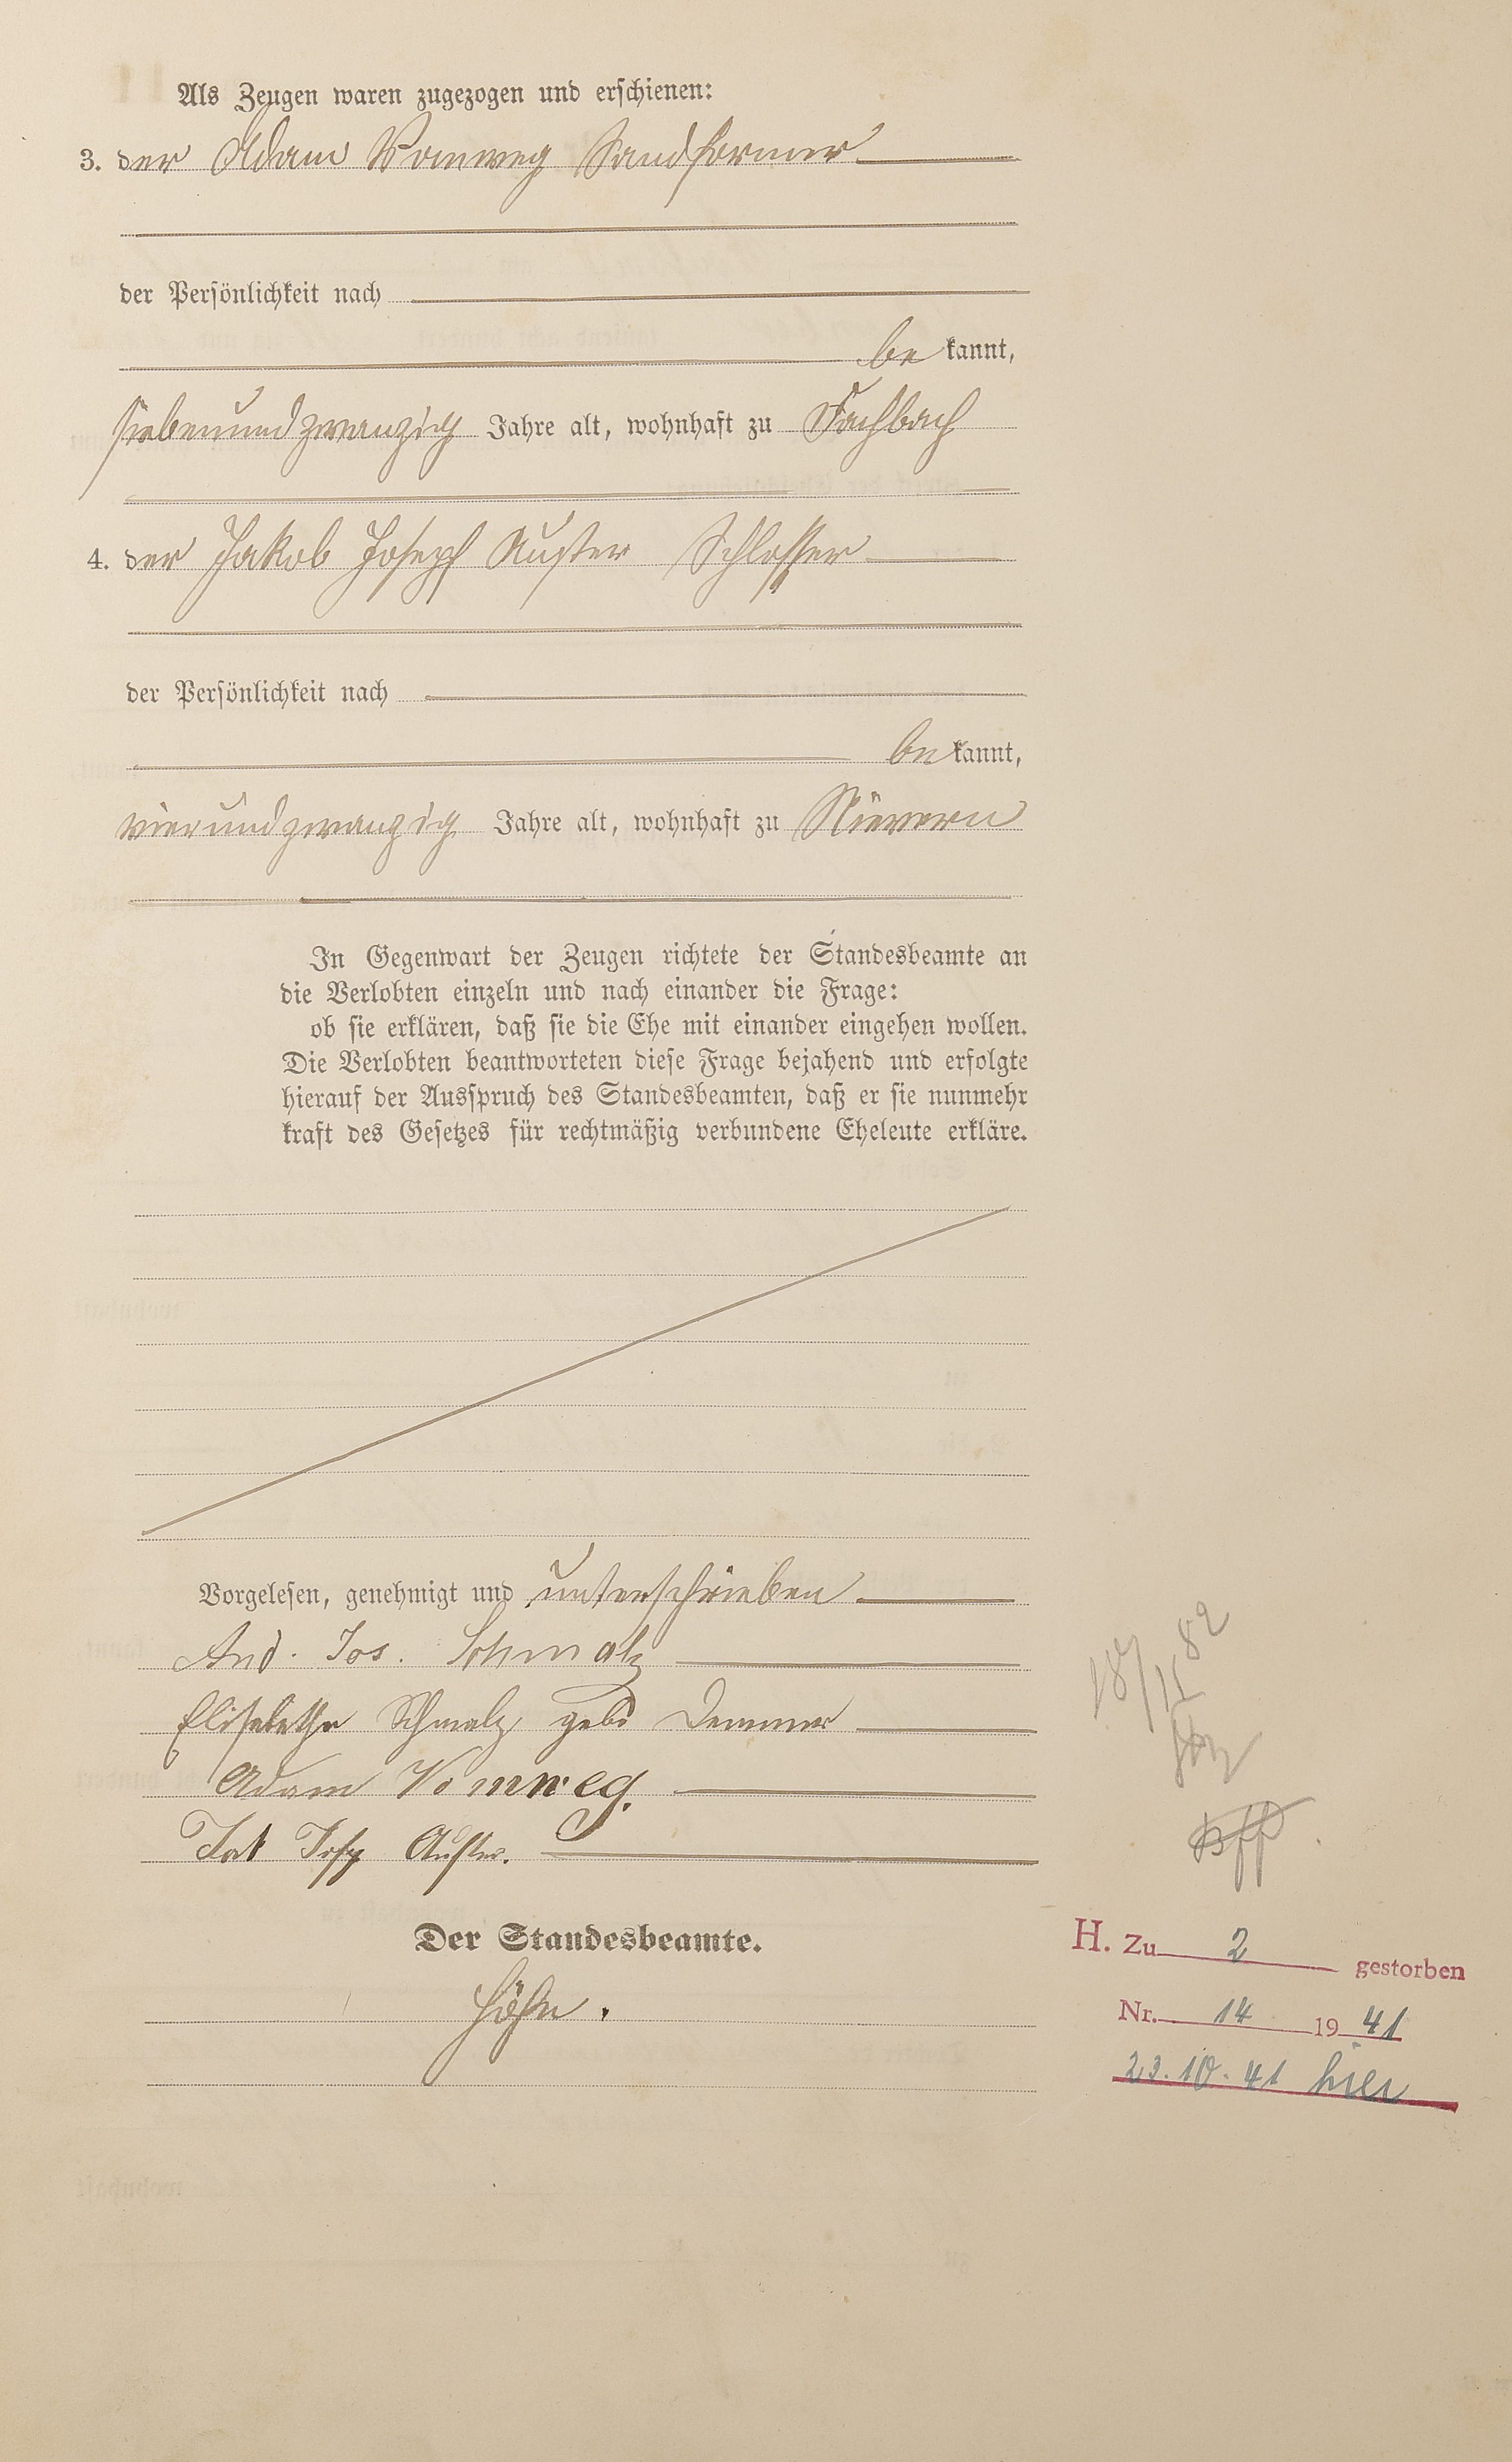 Als Zeugen waren zugezogen und erschienen:
3. der Adam Vomweg Sandformer
der Persönlichkeit nach
be kannt,
siebenundzwanzig Jahre alt, wohnhaft zu Fachbach
4. der Jakob Joseph Auster Schlosser
der Persönlichkeit nach
be kannt,
vierundzwanzig Jahre alt, wohnhaft zu Nievern
In Gegenwart der Zeugen richtete der Standesbeamte an
die Verlobten einzeln und nach einander die Frage:
ob sie erklären, daß sie die Ehe mit einander eingehen wollen.
Die Verlobten beantworteten diese Frage bejahend und erfolgte
hierauf der Ausspruch des Standesbeamten, daß er sie nunmehr
kraft des Gesetzes für rechtmäßig verbundene Eheleute erkläre.
Vorgelesen, genehmigt und unterschrieben
And. Jos. Schmalz
Elisabetha Schmalz geb. Demmer
Adam Vomweg.
Jak Josp Auster.
Der Standesbeamte.
Höhn.
H. Zu 2 gestorben
Nr. 14 1941
23.10.41 hier